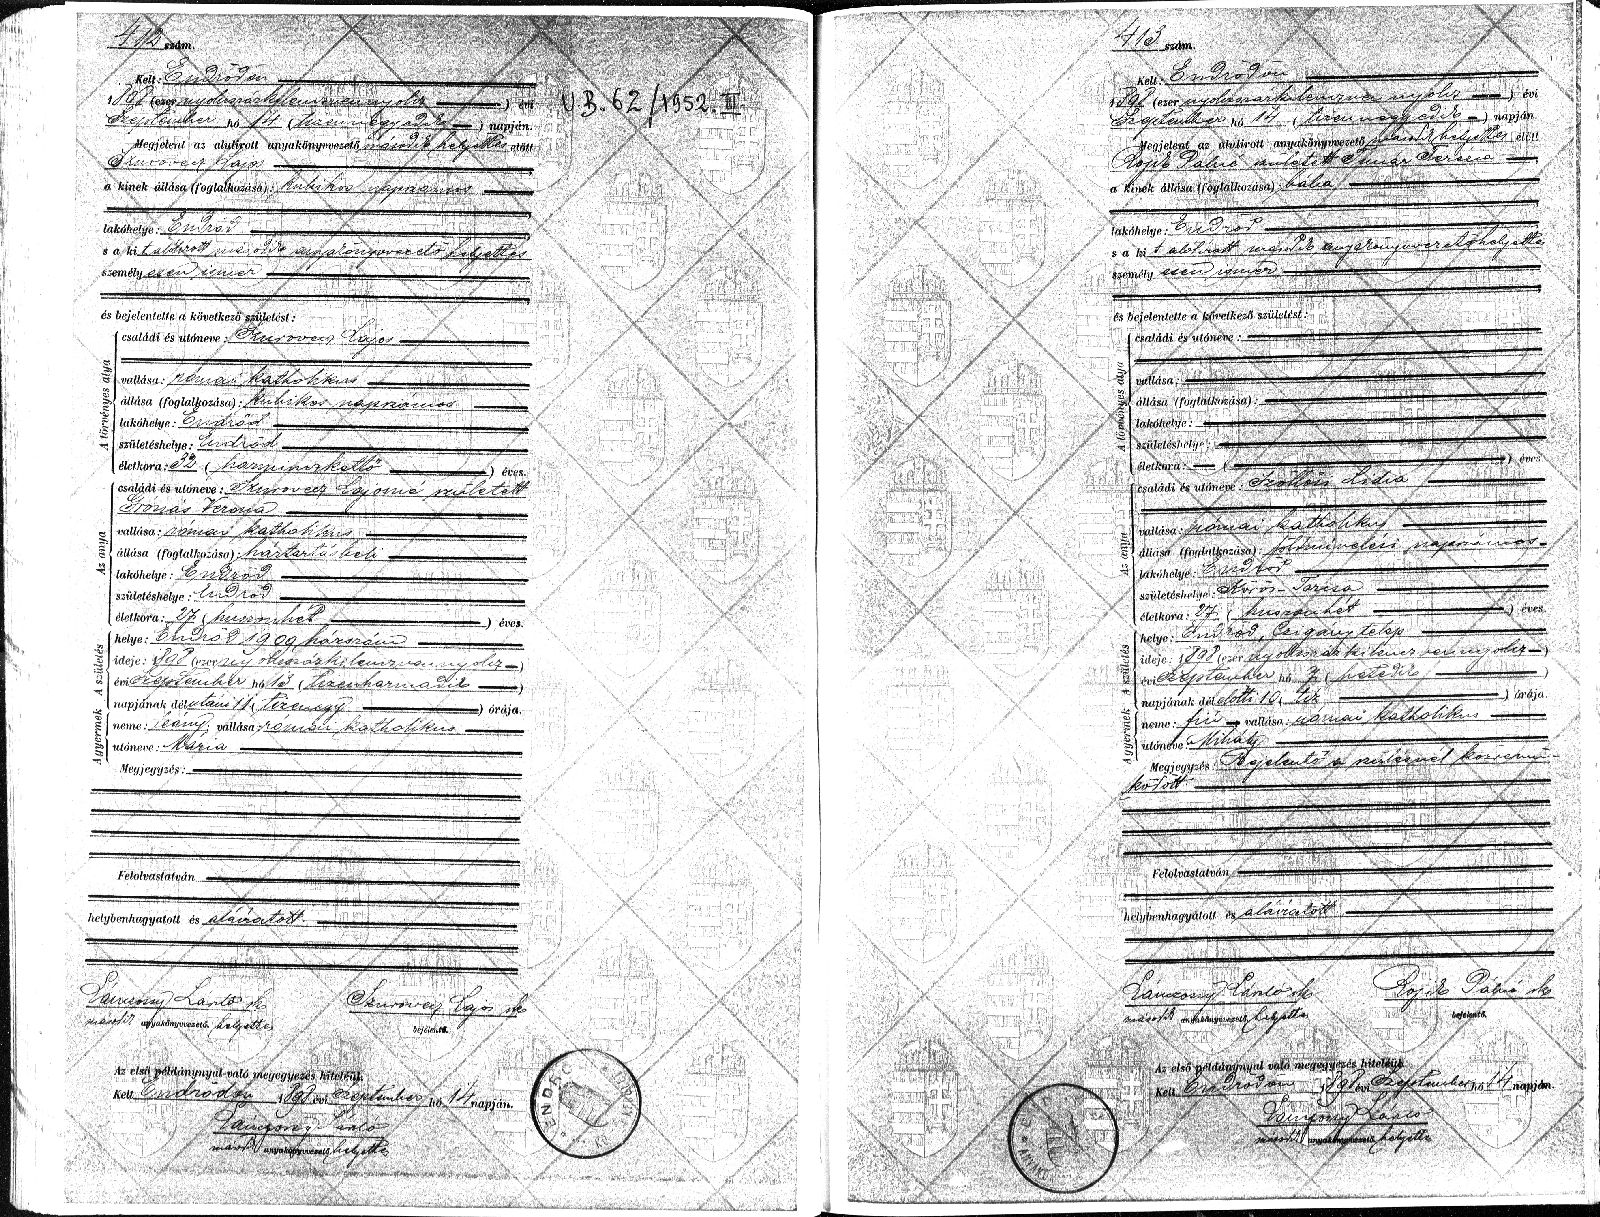 412 szám.
Kelt: Endrődön
1898 (ezer nyolcszázkilencvennyolcz) évi
szeptember hó 14 (tizennegyedik) napján.
Megjelent az alulirott anyakönyvvezető második helyettes előtt
Szurovecz Lajos
a kinek állása (foglalkozása): kubikos napszámos
lakóhelye: Endrőd
s a kit alulirott második anyakönyvvezető helyettes
személyesen ismer
és bejelentette a következő születést:
A törvényes atya
családi és utóneve: Szurovecz Lajos
vallása: római katholikus
állása (foglalkozása): kubikos napszámos
lakóhelye: Endrőd
születéshelye: Endrőd
életkora: 32 (harminczkettő) éves.
Az anya
családi és utóneve: Szurovecz Lajosné született
Verona
vallása: római katholikus
állása (foglalkozása): háztartásbeli
lakóhelye: Endrőd
születéshelye: Endrőd
életkora: 27 (huszonhét) éves.
A születés
helye: Endrőd 1909 házszám
ideje: 1898 (ezer nyolcszázkilenczvennyolcz)
évi szeptember hó 13 (tizenharmadik)
napjának délutáni 11 (tizenegy) órája.
A gyermek
neme: leány; vallása: római katholikus
utóneve: Mária
Megjegyzés:
Felolvastatván
helybenhagyatott és aláíratott.
László sk
második anyakönyvvezető helyettes
Szurovecz Lajos sk
bejelentő.
Az első példánynyal való megegyezés hiteléül.
Kelt Endrődön 1898 évi szeptember hó 14 napján.
László
második anyakönyvvezető helyettes
U.B. 62/1952. II
ENDRŐD
413 szám.
Kelt: Endrődön
1898 (ezer nyolcszázkilenczvennyolcz) évi
szeptember hó 14 (tizennegyedik) napján.
Megjelent az alulirott anyakönyvvezető második helyettes előtt
Rojik Pálné született Teréz
a kinek állása (foglalkozása): bába
lakóhelye: Endrőd
s a kit alulirott második anyakönyvvezető helyettes
személyesen ismer
és bejelentette a következő születést:
A törvényes atya
családi és utóneve:
vallása:
állása (foglalkozása):
lakóhelye:
születéshelye:
életkora: ( ) éves.
Az anya
családi és utóneve: Szöllősi Lidia
vallása: római katholikus
állása (foglalkozása): földmivelési napszámos
lakóhelye: Endrőd
születéshelye: Körös-Tarcsa
életkora: 27 (huszonhét) éves.
A születés
helye: Endrőd, Czigánytelep
ideje: 1898 (ezer nyolcszázkilenczvennyolcz)
évi szeptember hó 7 (hetedik)
napjának délelőtti 10 (tíz) órája.
A gyermek
neme: fiú vallása: római katholikus
utóneve: Mihály
Megjegyzés: Bejelentő a szülésnél közremű-
ködött
Felolvastatván
helybenhagyatott és aláíratott
László sk
második anyakönyvvezető helyettes
Rojik Pálné sk
bejelentő.
Az első példánynyal való megegyezés hiteléül.
Kelt Endrődön 1898 évi szeptember hó 14 napján.
László
második anyakönyvvezető helyettes